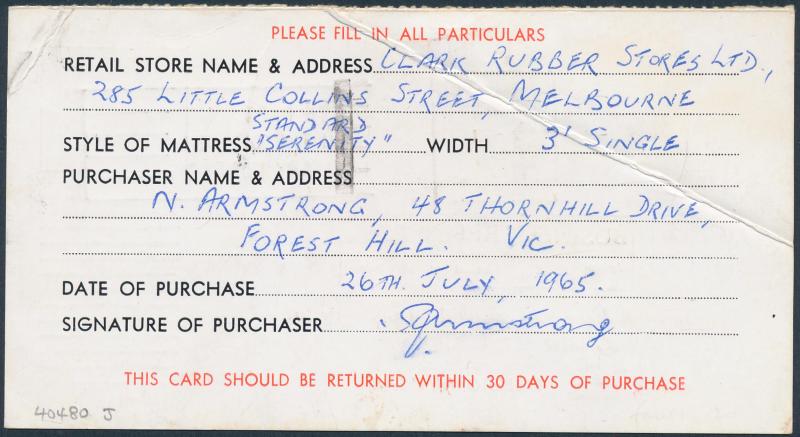 PLEASE FILL IN ALL PARTICULARS
RETAIL STORE NAME & ADDRESS CLARK RUBBER STORES LTD.,
285 LITTLE COLLINS STREET, MELBOURNE
STANDARD
STYLE OF MATTRESS "SERENITY" WIDTH 3' SINGLE
PURCHASER NAME & ADDRESS
N. ARMSTRONG, 48 THORNHILL DRIVE,
FOREST HILL. VIC.
DATE OF PURCHASE 26TH JULY, 1965.
SIGNATURE OF PURCHASER Armstrong
THIS CARD SHOULD BE RETURNED WITHIN 30 DAYS OF PURCHASE
40480 J